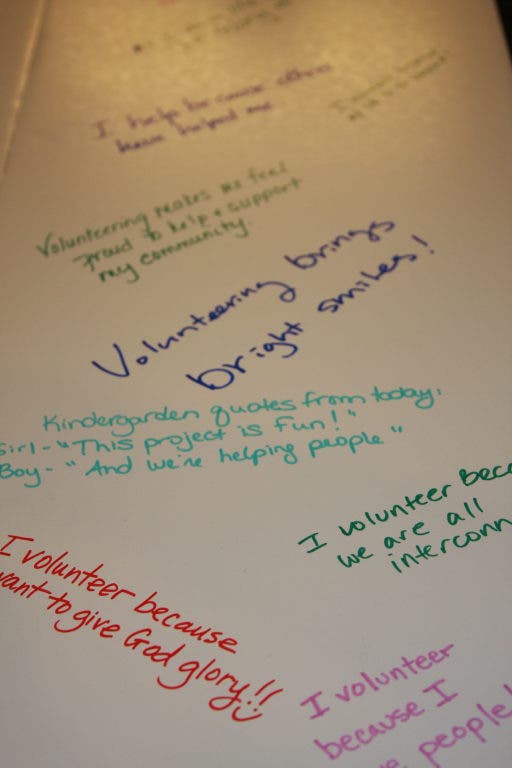 I help because others
have helped me.
Volunteering makes me feel
proud to help & support
my community.
Volunteering brings
bright smiles!
Kindergarden quotes from today:
Girl - "This project is Fun!"
Boy - "And we're helping people"
I volunteer beca
we are all
interconn
I volunteer because
want to give God glory!!
I volunteer
because I
people!